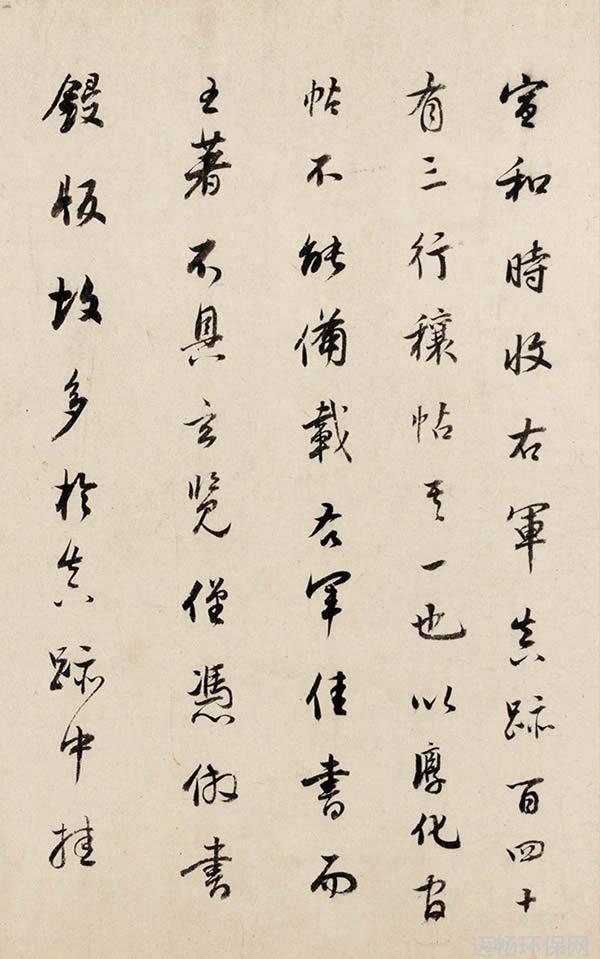 宣和時收右軍真跡百四十
有三行穰帖其一也以淳化官
帖不能備載右軍佳書而
王著不具玄覽僅憑倣書
鋟版故多於真跡中挂
迈畅环保网